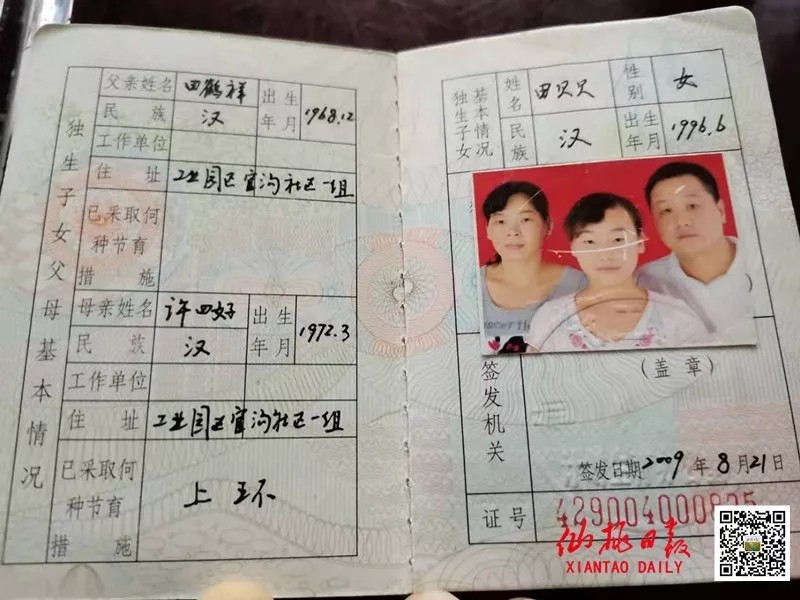 独生子女父母基本情况
父亲姓名 田鹤祥 出生年月 1968.12
民族 汉
工作单位
住址 工业园区官沟社区一组
已采取何种节育措施
母亲姓名 许四好 出生年月 1972.3
民族 汉
工作单位
住址 工业园区官沟社区一组
已采取何种节育措施 上环
独生子女基本情况
姓名 田贝贝 性别 女
民族 汉 出生年月 1996.6
(盖章)
签发机关
签发日期 2009年8月21日
证号 429004000825
仙桃日报
XIANTAO DAILY